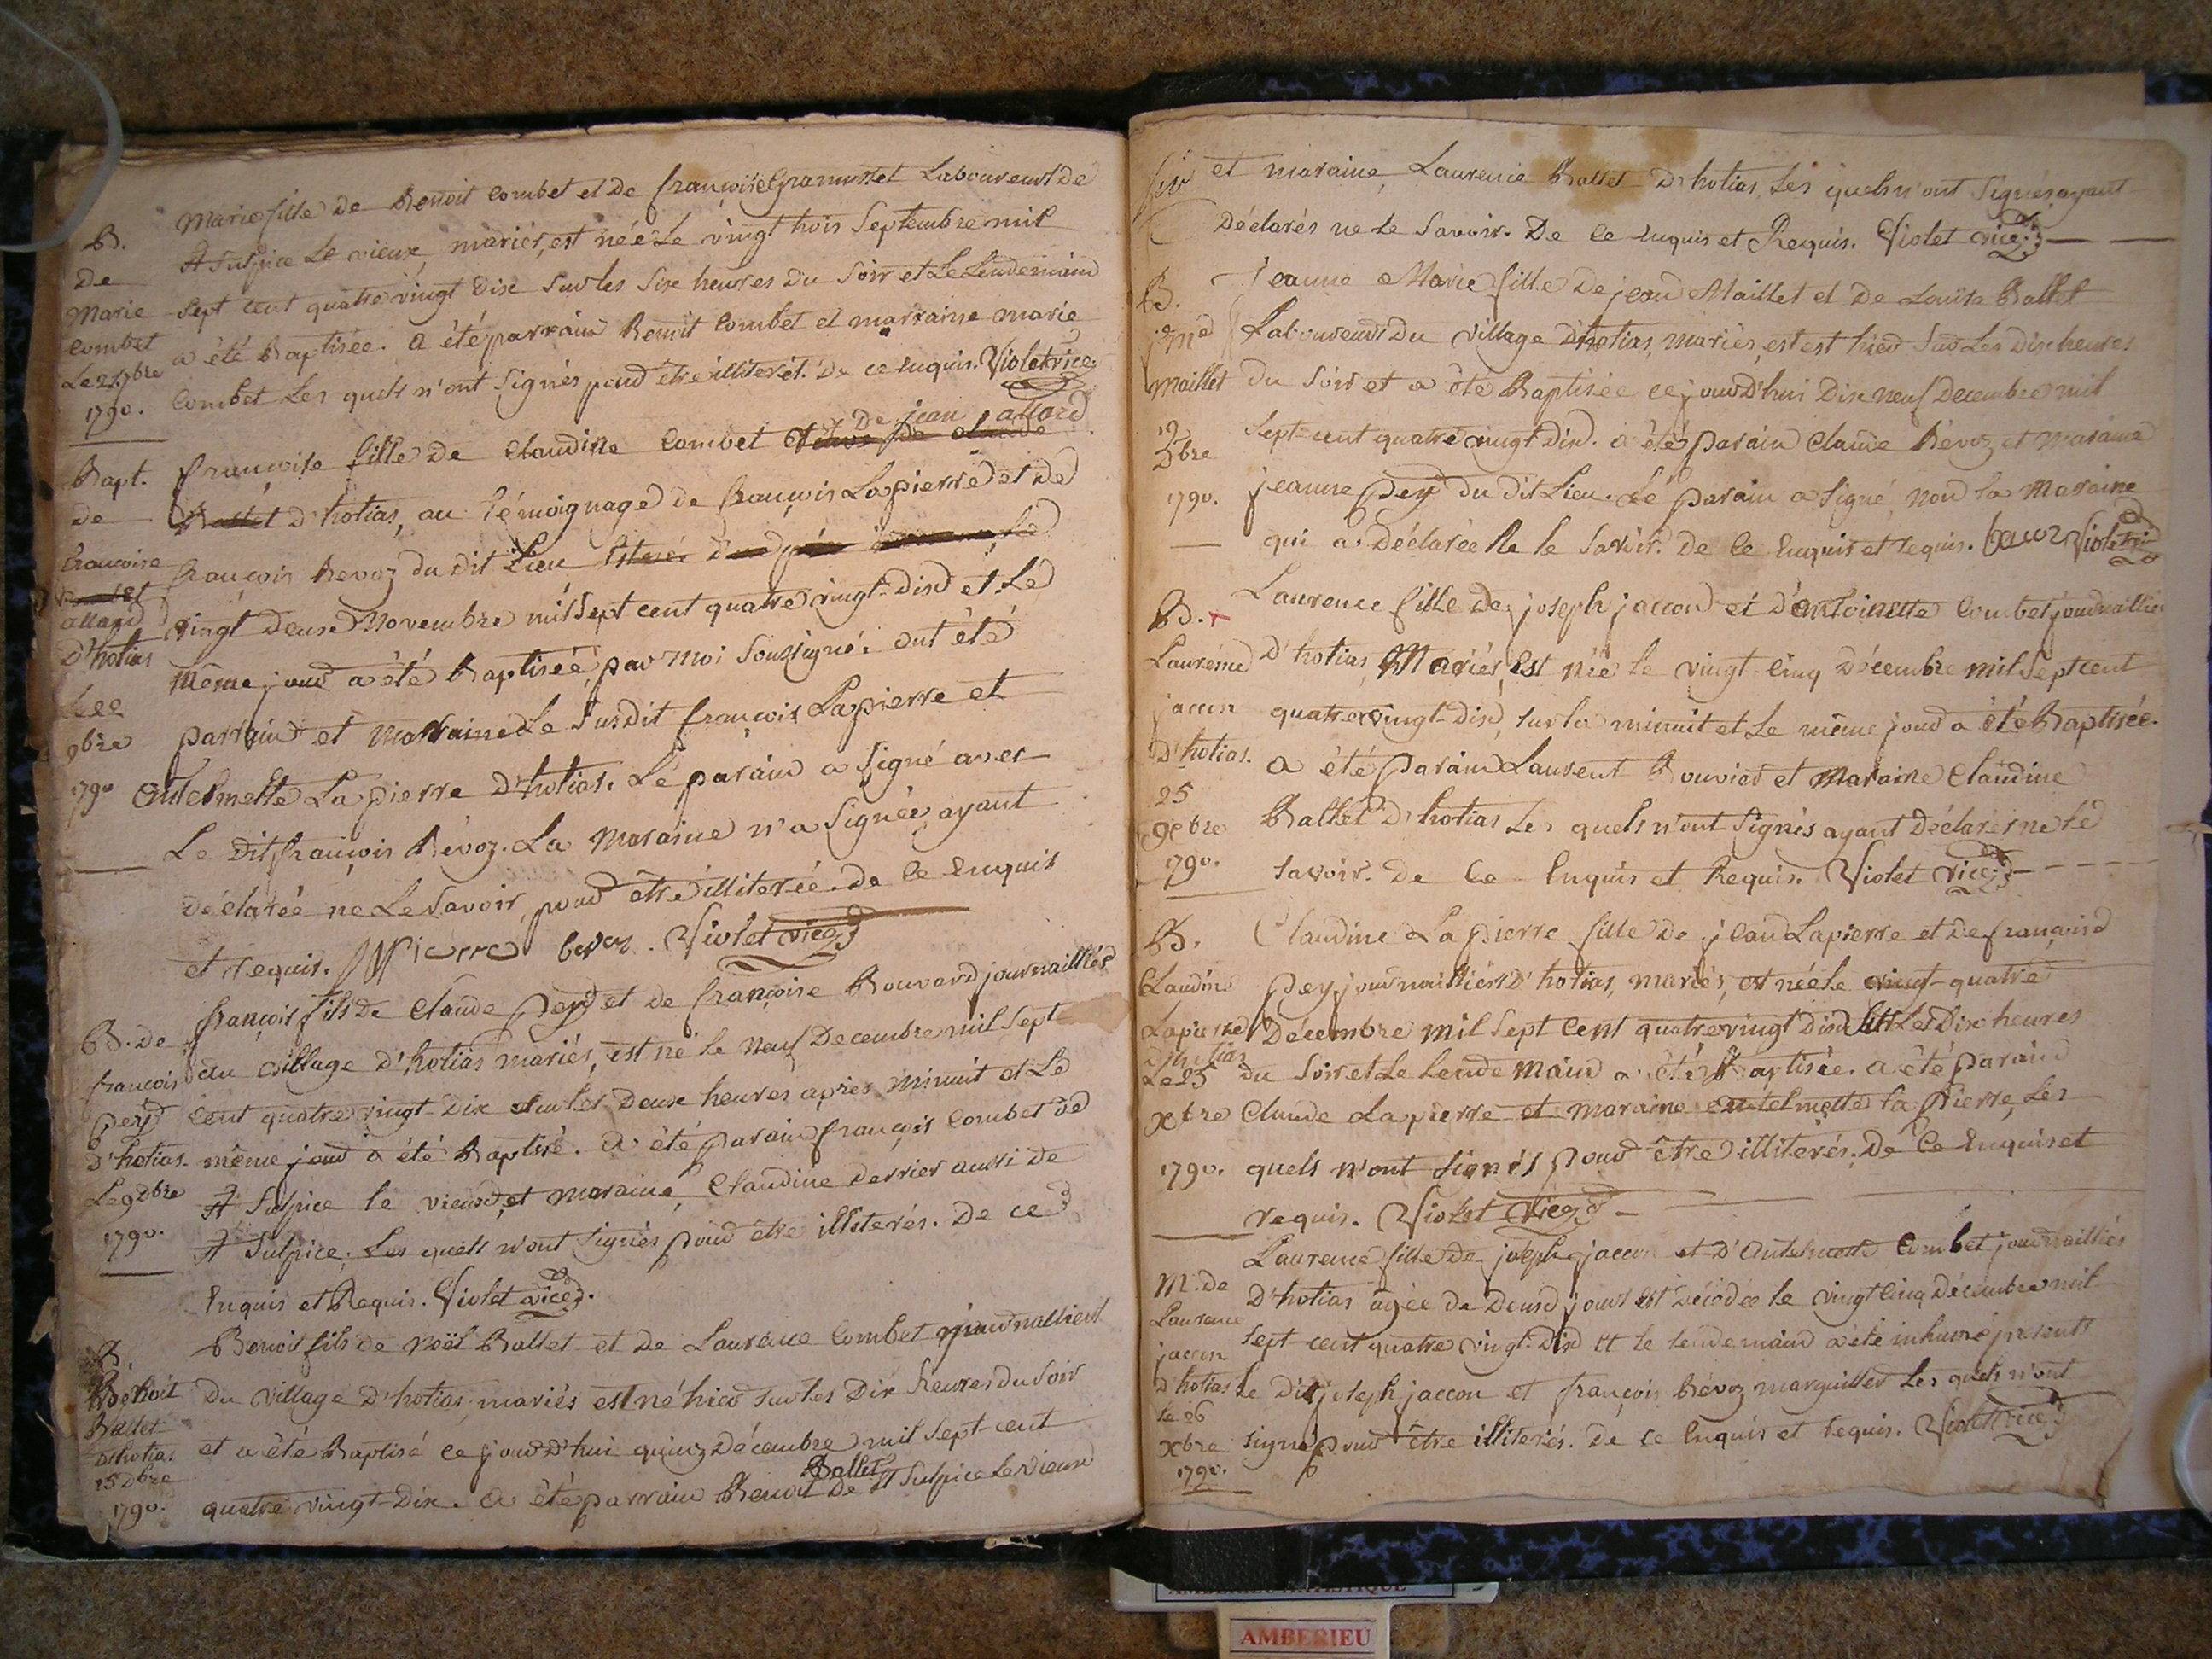 Marie fille de Benoit Combet et de françoise Gramusset Laboureurs de
St Sulpice Le vieux, mariés, est née Le vingt trois Septembre mil
Sept cent quatre vingt Dix Sur les Six heures du Soir et Le Lendemain
a été Baptisée. a été parrain Benoit Combet et marraine marie
Combet Les quels n'ont Signés pour être illiterés. De ce Enquis. Violet vice
B.
De
Marie
Combet
1790.
De jean allard
françoise fille De Claudine Combet
Ballet D'hotias, au témoignage de françois Lapierre et de
françois Bevoz du dit Lieu
vingt deux Novembre mil Sept cent quatre vingt-Dix et Le
même jour a été Baptisée, par Moi Soussigné. ont été
parrain et Marraine Le Susdit françois Lapierre et
Antelmette La pierre D'hotias. Le parain a Signé avec
Le Dit françois Bévoz. La Maraine n'a Signée ayant
déclarée ne Le Savoir, pour être illiterée. de Ce Enquis
et requis. bevoz. Violet vice
Bapt.
de
francoise
allard
D'hotias
9bre
1790
françois fils De Claude Pey et de françoise Bouvard journailliés
du village D'hotias mariés, est né le Neuf Decembre mil Sept
Cent quatre vingt-Dix Sur les Deux heures après Minuit et Le
même jour a été Baptisé. a été parain françois Combet de
St Sulpice le vieux, et maraine, Claudine derrier aussi de
St Sulpice. Les quels n'ont Signés pour être illiterés. De ce
Enquis et Requis. Violet vice
B. de
françois
pey
D'hotias.
Le 9 dbre
1790.
Benoit fils de Noël Ballet et de Laurence Combet journalliers
Du village D'hotias, mariés est né hier sur les Dix heures du Soir
et a été Baptisé ce jour D'hui quinz Décembre mil Sept-cent
Ballet
quatre vingt-Dix. a été parrain Benoit De St Sulpice Le vieux
B.
Benoit
Ballet
D'hotias
15 Dbre
1790.
et maraine, Laurence Ballet D'hotias, Les quels n'ont Signés ayant
Déclarés ne le Savoir. De Ce Enquis et Requis. Violet vice
Jeanne Marie fille De jean Maillet et De Louïse Ballet
Laboureurs Du village D'hotias, mariés, est est hier Sur Les Dix heures
du Soir et a été Baptisée ce jour D'hui Dix neuf Decembre mil
Sept-cent quatre vingt Dix. a été parain Claude Bévoz et Maraine
jeanne pey du dit Lieu. Le parain a Signé, non la Maraine
qui a Déclarée Ne le Savoir. de Ce Enquis et requis. bevoz Violet
B.
Maillet
19
Dbre
1790.
Laurence fille De joseph jaccon et d'antoinette Combet journaillier
D'hotias, Mariés, Est née le vingt-Cinq Décembre mil Sept cent
quatre vingt-Dix, Sur la minuit et Le même jour a été Baptisée.
a été parain Laurent Bouvier et Maraine Claudine
Ballet D'hotias Les quels n'ont Signés ayant Déclarés ne le
Savoir. De Ce Enquis et Requis. Violet vice
B.
Laurence
jaccon
D'hotias.
25
1790.
Claudine La pierre fille De jean Lapierre et de françoise
pey, journailliers D'hotias, mariés, est née Le vingt-quatre
Décembre mil Sept Cent quatre vingt Dix Sur Les Dix heures
du Soir et Le lende Main a été Baptisée. a été parain
Claude La pierre et maraine antelmette la pierre, Les
quels n'ont Signés pour être illiterés. De Ce Enquis et
requis. Violet vice
B.
Claudine
Lapierre
D'hotias
Le 25
xbre
1790.
Laurence fille De joseph jaccon et D'Antelmette Combet journailliés
D'hotias agée de Deux jours est Décédée le vingt Cinq Décembre mil
Sept-cent quatre vingt-Dix et le lendemain a été inhumé presents
Le Dit joseph jaccon et françois Bévoz marguillier Les quels n'ont
Signé pour être illiterés. De ce Enquis et requis. Violet vice
M. de
Laurence
jaccon
D'hotias
le 26
xbre
1790.
AMBERIEU